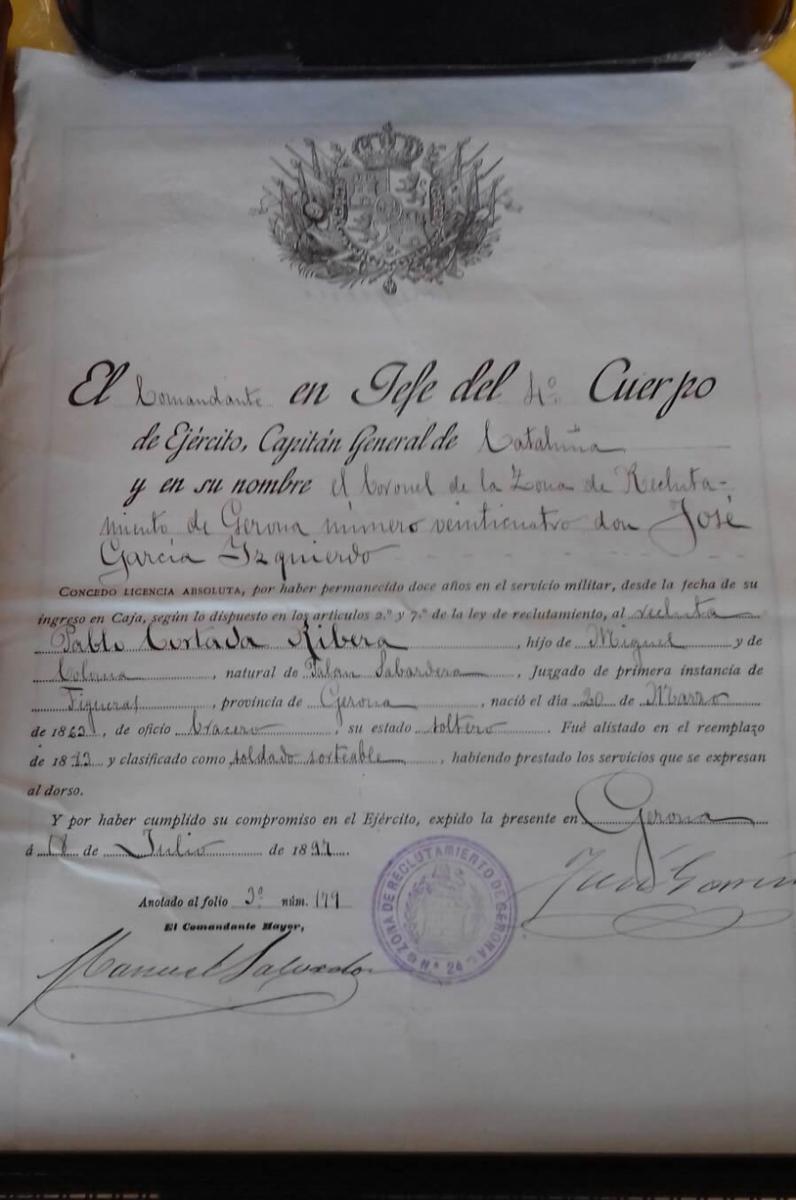 El Comandante en Jefe del 4.º Cuerpo
de Ejército, Capitán General de Cataluña
y en su nombre el Coronel de la Zona de Recluta-
miento de Gerona número veinticuatro don José
García Izquierdo
CONCEDO LICENCIA ABSOLUTA, por haber permanecido doce años en el servicio militar, desde la fecha de su
ingreso en Caja, según lo dispuesto en los artículos 2.º y 7.º de la ley de reclutamiento, al recluta
Pablo Cortada Ribera, hijo de Miguel y de
Coloma, natural de Palau Sabardera, Juzgado de primera instancia de
Figueras, provincia de Gerona, nació el día 20 de Marzo
de 18, de oficio bracero, su estado soltero. Fué alistado en el reemplazo
de 18 y clasificado como soldado sorteable, habiendo prestado los servicios que se expresan
al dorso.
Y por haber cumplido su compromiso en el Ejército, expido la presente en Gerona
á 18 de Julio de 1897.
Anotado al folio 3º núm. 179
El Comandante Mayor,
Manuel Salvador
José García
ZONA DE RECLUTAMIENTO DE GERONA
Nº 24